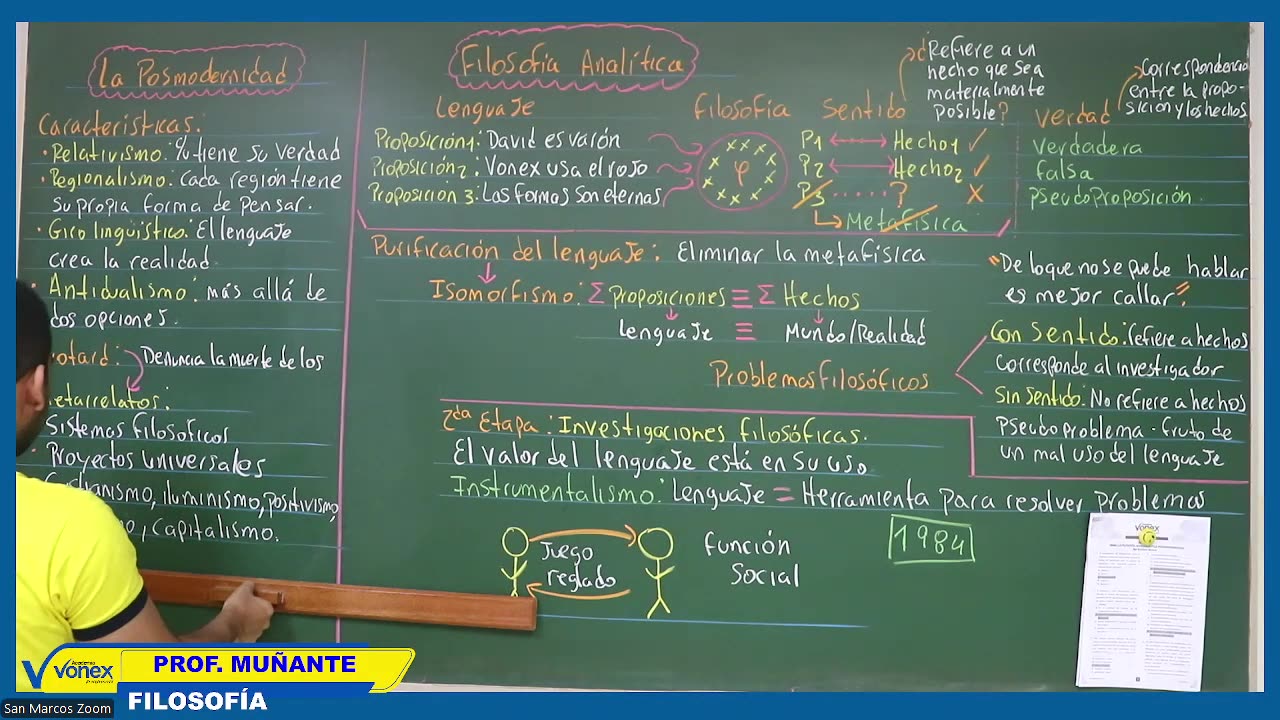 La Posmodernidad
Características:
• Relativismo: %tiene su verdad
• Regionalismo: cada región tiene
su propia forma de pensar.
• Giro lingüístico: El lenguaje
crea la realidad.
• Antidualismo: más allá de
dos opciones.
otard: Denuncia la muerte de los
etarrelatos:
Sistemas filosóficos
• Proyectos universales
iluminismo, positivismo,
o, capitalismo.
Filosofía Analítica
Lenguaje
Proposición1: David es varón
Proposición2: Vonex usa el rojo
Proposición 3: Las formas son eternas
filosofía
φ
Sentido
¿Refiere a un
hecho que sea
materialmente
posible?
P1 Hecho1 ✓
P2 Hecho2 ✓
P3 ..... ? X
Metafísica
Verdad
Correspondencia
entre la propo-
sición y los hechos
verdadera
falsa
pseudoproposición.
Purificación del lenguaje: Eliminar la metafísica
Isomorfismo: Σ proposiciones ≡ Σ Hechos
Lenguaje ≡ Mundo/Realidad
"De lo que no se puede hablar
es mejor callar"
Problemas filosóficos
Con sentido: refiere a hechos
Corresponde al investigador
Sin sentido: No refiere a hechos
Pseudoproblema. fruto de
un mal uso del lenguaje
2da Etapa: Investigaciones filosóficas.
El valor del lenguaje está en su uso.
Instrumentalismo: Lenguaje = Herramienta para resolver problemas
Juego
reglado
función
social
1984
Vonex
Academia
Vonex
PROF. MUÑANTE
FILOSOFÍA
San Marcos Zoom